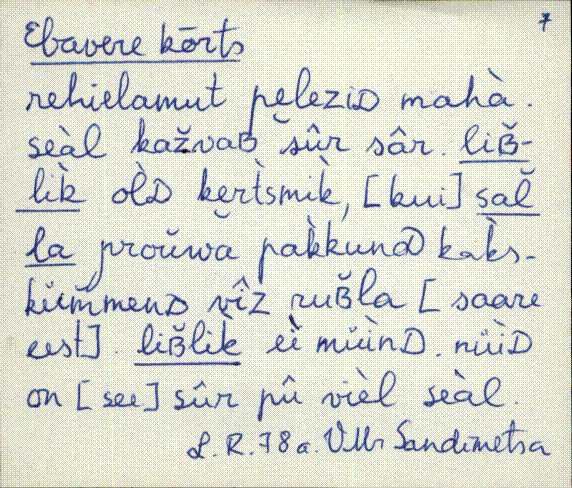 7
Ebavere kõrts
rehielamut pęleziᴅ mahà.
seàl kažvaʙ sûr sâr. liʙ̆-
lìk òlᴅ kęrt̀smik̀, [kui] sal̆
la proŭwa pak̀kunᴅ kak̀s-
kŭm̆menᴅ vîz ruʙ̆la [saare
eest]. liʙ̆lìk eì mŭìnᴅ. nŭìᴅ
on [see] sûr pû vièl seàl.
L.R. 78a. V.Mr Sandimetsa